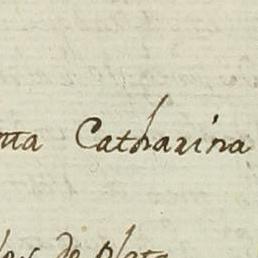 nta Catharina
los de plata